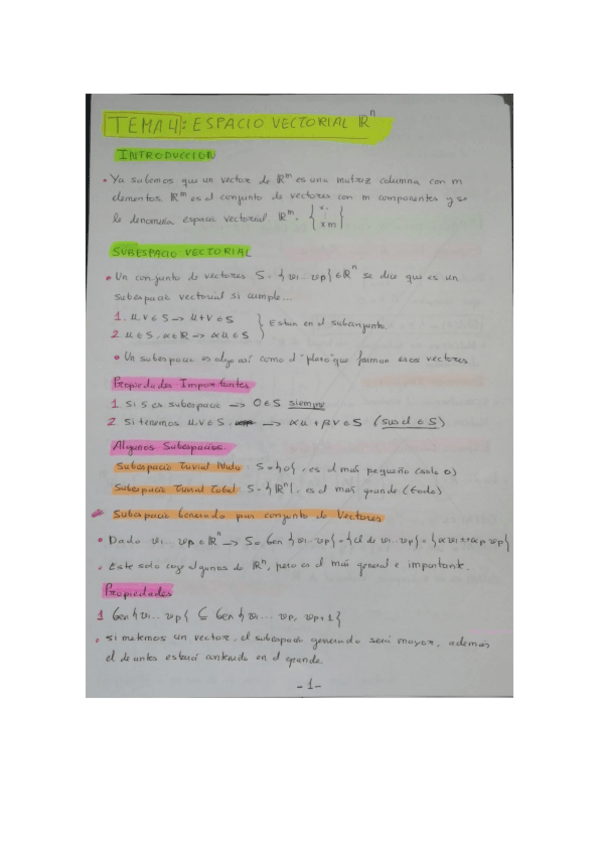 TEMA 4: ESPACIO VECTORIAL ℝⁿ
INTRODUCCION
• Ya sabemos que un vector de ℝᵐ es una matriz columna con m
elementos. ℝᵐ es el conjunto de vectores con m componentes y se
le denomina espacio vectorial. ℝᵐ =
SUBESPACIO VECTORIAL
• Un conjunto de vectores S = {v1... vp} ∈ ℝⁿ se dice que es un
subespacio vectorial si cumple...
1. u, v ∈ S → u+v ∈ S
2. u ∈ S, α ∈ ℝ → αu ∈ S } Estan en el subconjunto.
• Un subespacio es algo así como el "plano" que forman esos vectores
Propiedades Importantes
1 Si S es subespacio → 0 ∈ S siempre
2 Si tenemos u, v ∈ S, → αu + βv ∈ S
Algunos Subespacios
Subespacio Trivial Nulo: S = {0}, es el más pequeño (solo 0)
Subespacio Trivial Total: S = {ℝⁿ}, es el más grande (todo)
Subespacio Generado por conjunto de Vectores
• Dado v1... vp ∈ ℝⁿ → S = Gen {v1... vp} = {cl de v1... vp} = {αv1+...+αp vp}
• Este solo coge algunos de ℝⁿ, pero es el más general e importante.
Propiedades
1 Gen {v1... vp} ⊆ Gen {v1... vp, vp+1}
• si metemos un vector, el subespacio generado será mayor, además
el de antes estará contenido en el grande.
-1-